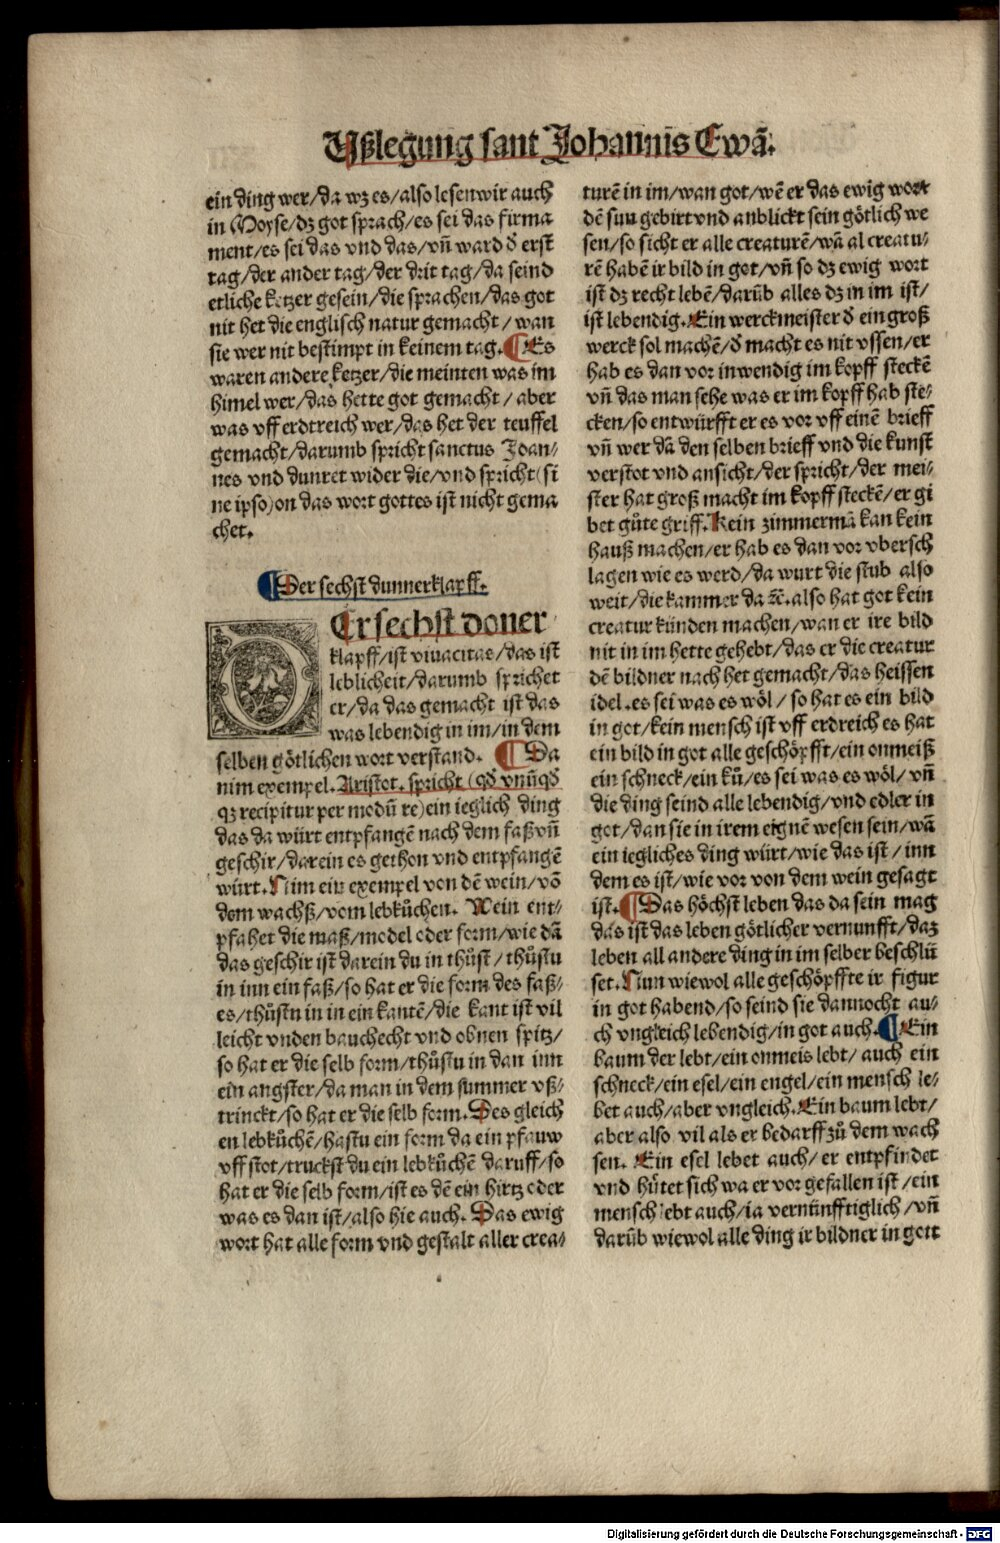 Vßlegung sant Johannis Ewā.
ein ding wer/da wz es/also lesen wir auch
in Moyse/dz got sprach/es sei das firma
ment/es sei das vnd das/vñ ward d̄ erst
tag/der ander tag/der drit tag/da seind
etliche ketzer gesein/die sprachen/das got
nit het die englisch natur gemacht/wan
sie wer nit bestimpt in keinem tag. ¶ Es
waren andere ketzer/die meinten was im
himel wer/das hette got gemacht/aber
was vff erdtreich wer/das het der teuffel
gemacht/darumb spricht sanctus Joan⸗
nes vnd dunret wider die/vnd spricht (si
ne ipso) on das wort gottes ist nicht gema
chet.
¶ Der sechst dunnerklapff.
DEr sechst doner
klapff/ist viuacitas/das ist
leblicheit/darumb sprichet
er/da das gemacht ist das
was lebendig in im/in dem
selben götlichen wort verstand. ¶ Da
nim exempel. Aristot. spricht (qd̄ vnūqd̄
qz recipitur per modū re) ein ieglich ding
das da würt entpfangē nach dem faß vñ
geschir/darein es gethon vnd entpfangē
würt. Nim ein exempel von dē wein/vō
dem wachß/vom lebkůchen. Wein ent⸗
pfahet die maß/model oder form/wie dā
das geschir ist darein du in thůst/thůstu
in inn ein faß/so hat er die form des faß⸗
es/thůstu in in ein kantē/die kant ist vil
leicht vnden bauchecht vnd obnen spitz/
so hat er die selb form/thůstu in dan inn
ein angster/da man in dem summer vß⸗
trinckt/so hat er die selb form. Des gleich
en lebkůchē/hastu ein form da ein pfauw
vff stot/truckst du ein lebkůchē daruff/so
hat er die selb form/ist es dē ein hirtz oder
was es dan ist/also hie auch. Das ewig
wort hat alle form vnd gestalt aller crea⸗
turē in im/wan got/wē er das ewig wort
dē sun gebirt vnd anblickt sein götlich we
sen/so sicht er alle creaturē/wā al creatu⸗
rē habē ir bild in got/vñ so dz ewig wort
ist dz recht lebē/darūb alles dz in im ist/
ist lebendig. Ein werckmeister d̄ ein groß
werck sol machē/d̄ macht es nit vssen/er
hab es dan vor inwendig im kopff steckē
vñ das man sehe was er im kopff hab ste⸗
cken/so entwürfft er es vor vff einē brieff
vñ wer dā den selben brieff vnd die kunst
verstot vnd ansicht/der spricht/der mei⸗
ster hat groß macht im kopff steckē/er gi
bet gůte griff. Kein zimmermā kan kein
hauß machen/er hab es dan vor vbersch
lagen wie es werd/da wurt die stub also
weit/die kammer da ⁊c̄. also hat got kein
creatur künden machen/wan er ire bild
nit in im hette gehebt/das er die creatur
dē bildner nach het gemacht/das heissen
idel. es sei was es wöl/so hat es ein bild
in got/kein mensch ist vff erdreich es hat
ein bild in got alle geschöpfft/ein onmeiß
ein schneck/ein ků/es sei was es wöl/vñ
die ding seind alle lebendig/vnd edler in
got/dan sie in irem eignē wesen sein/wā
ein iegliches ding würt/wie das ist/inn
dem es ist/wie vor von dem wein gesagt
ist. ¶ Das höchst leben das da sein mag
das ist das leben götlicher vernunfft/daz
leben all andere ding in im selber beschlü
set. Nun wiewol alle geschöpffte ir figur
in got habend/so seind sie dannocht au⸗
ch vngleich lebendig/in got auch. ¶ Ein
baum der lebt/ein onmeis lebt/auch ein
schneck/ein esel/ein engel/ein mensch le⸗
bet auch/aber vngleich. Ein baum lebt/
aber also vil als er bedarff zů dem wach
sen. Ein esel lebet auch/er entpfindet
vnd hütet sich wa er vor gefallen ist/ein
mensch lebt auch/ia vernünfftiglich/vñ
darūb wiewol alle ding ir bildner in gott
Digitalisierung gefördert durch die Deutsche Forschungsgemeinschaft - DFG